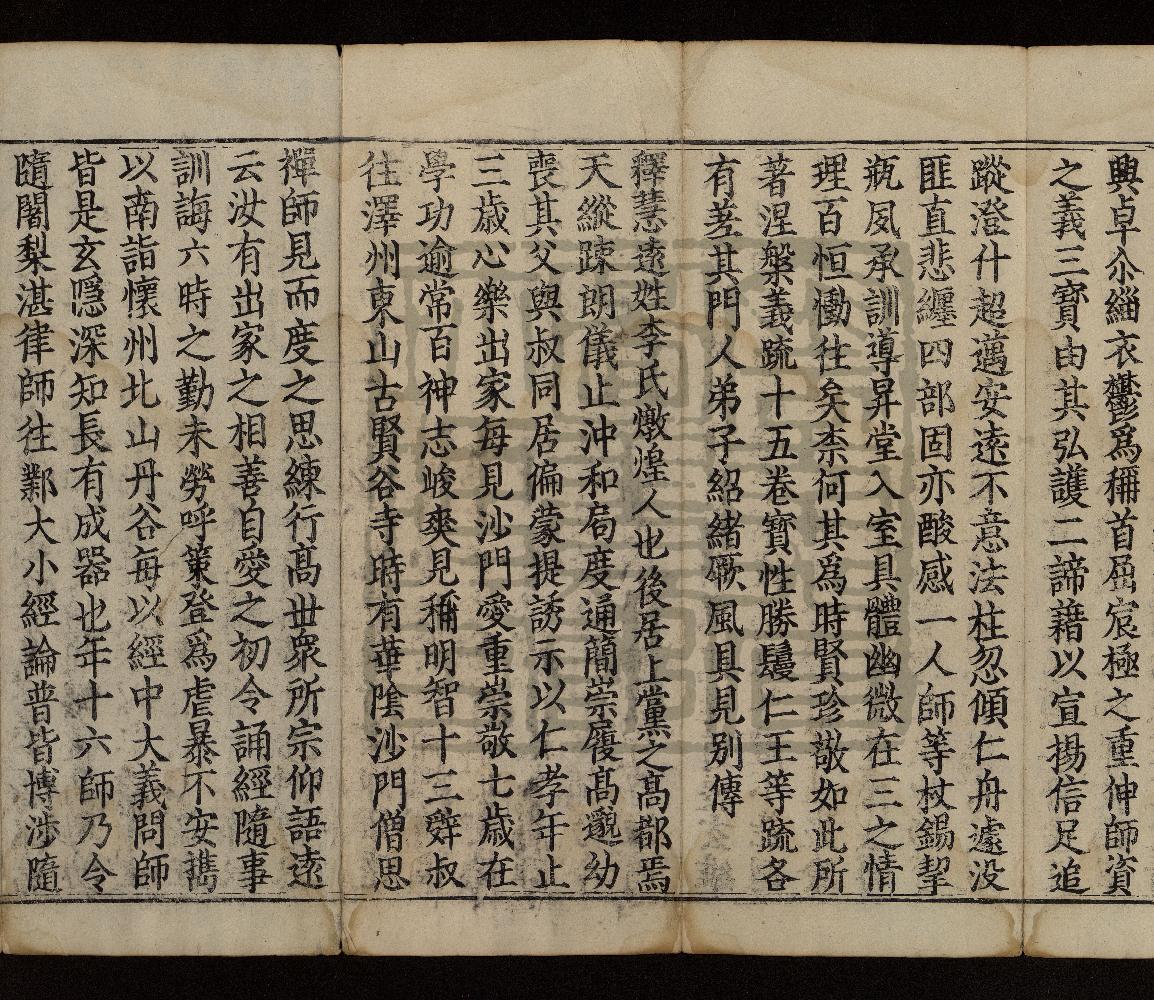 興卓尒緇衣鬱爲稱首屈宸極之重伸師資
之義三寶由其弘護二諦藉以宣揚信足追
蹤澄什超邁安遠不意法柱忽傾仁舟遽没
匪直悲纏四部固亦酸感一人師等杖錫挈
瓶夙承訓導昇堂入室具體幽微在三之情
理百恒慟往矣柰何其爲時賢珍敬如此所
著涅槃義疏十五卷寶性勝鬘仁王等疏各
有差其門人弟子紹緒厥風具見別傳
釋慧遠姓李氏燉煌人也後居上黨之髙都焉
天縱踈朗儀止沖和局度通簡崇履髙邈幼
喪其父與叔同居偏蒙提誘示以仁孝年止
三歳心樂出家每見沙門愛重崇敬七歳在
學功逾常百神志峻爽見稱明智十三辤叔
往澤州東山古賢谷寺時有華陰沙門僧思
禪師見而度之思練行髙世衆所宗仰語遠
云汝有出家之相善自愛之初令誦經隨事
訓誨六時之勤未勞呼策登爲虐暴不安攜
以南詣懷州北山丹谷每以經中大義問師
皆是玄隱深知長有成器也年十六師乃令
隨闍梨湛律師往鄴大小經論普皆博涉隨